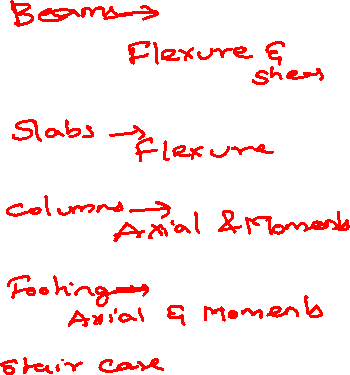 Beams →
Flexure &
Shear
Slabs →
Flexure
Columns →
Axial & Moments
Footing →
Axial & Moments
Stair case